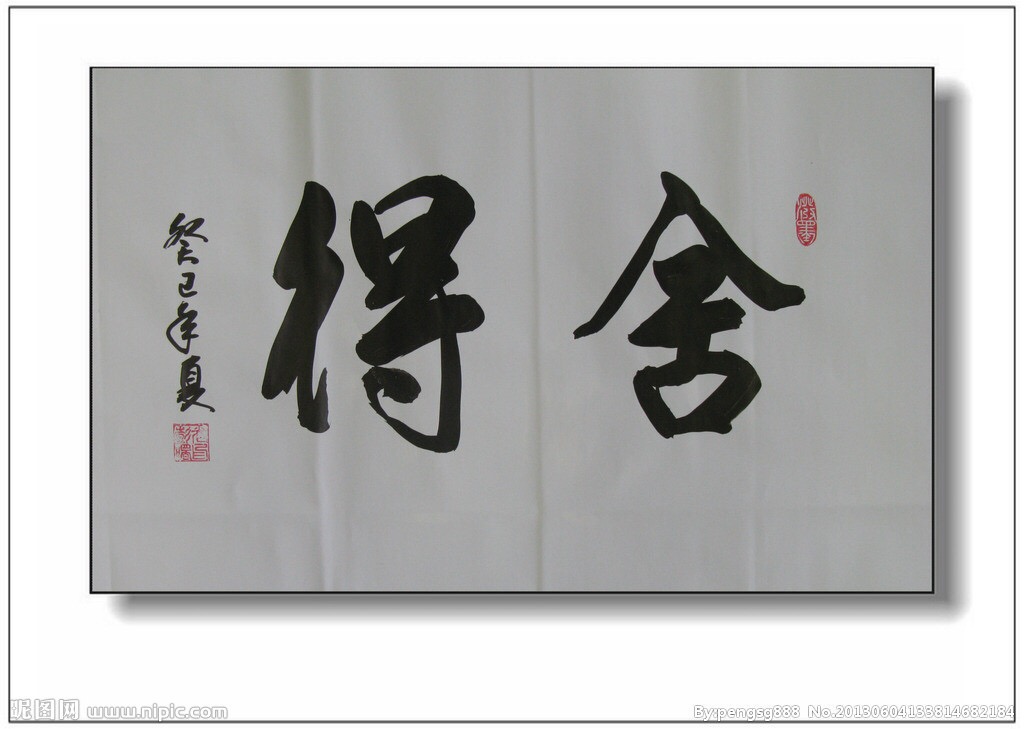 舍得
癸巳年夏
昵图网 www.nipic.com
By:pengsg888 No.20130604133814682184